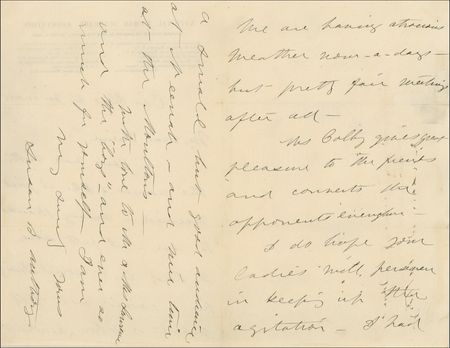 We are having atrocious
weather now-a-days-
but pretty fair meetings
after all -
Ms Colby gives great
pleasure to the friends
and converts the
opponents everywhere -
I do hope your
ladies will persevere
in keeping up the
agitation - I had
a small but good audience
at Neenah - and nice time
at the Moultons -
with love to Mr & Mrs
and the "boys", and ever so
much for yourself - I am
Very Sincerely yours
Susan B. Anthony